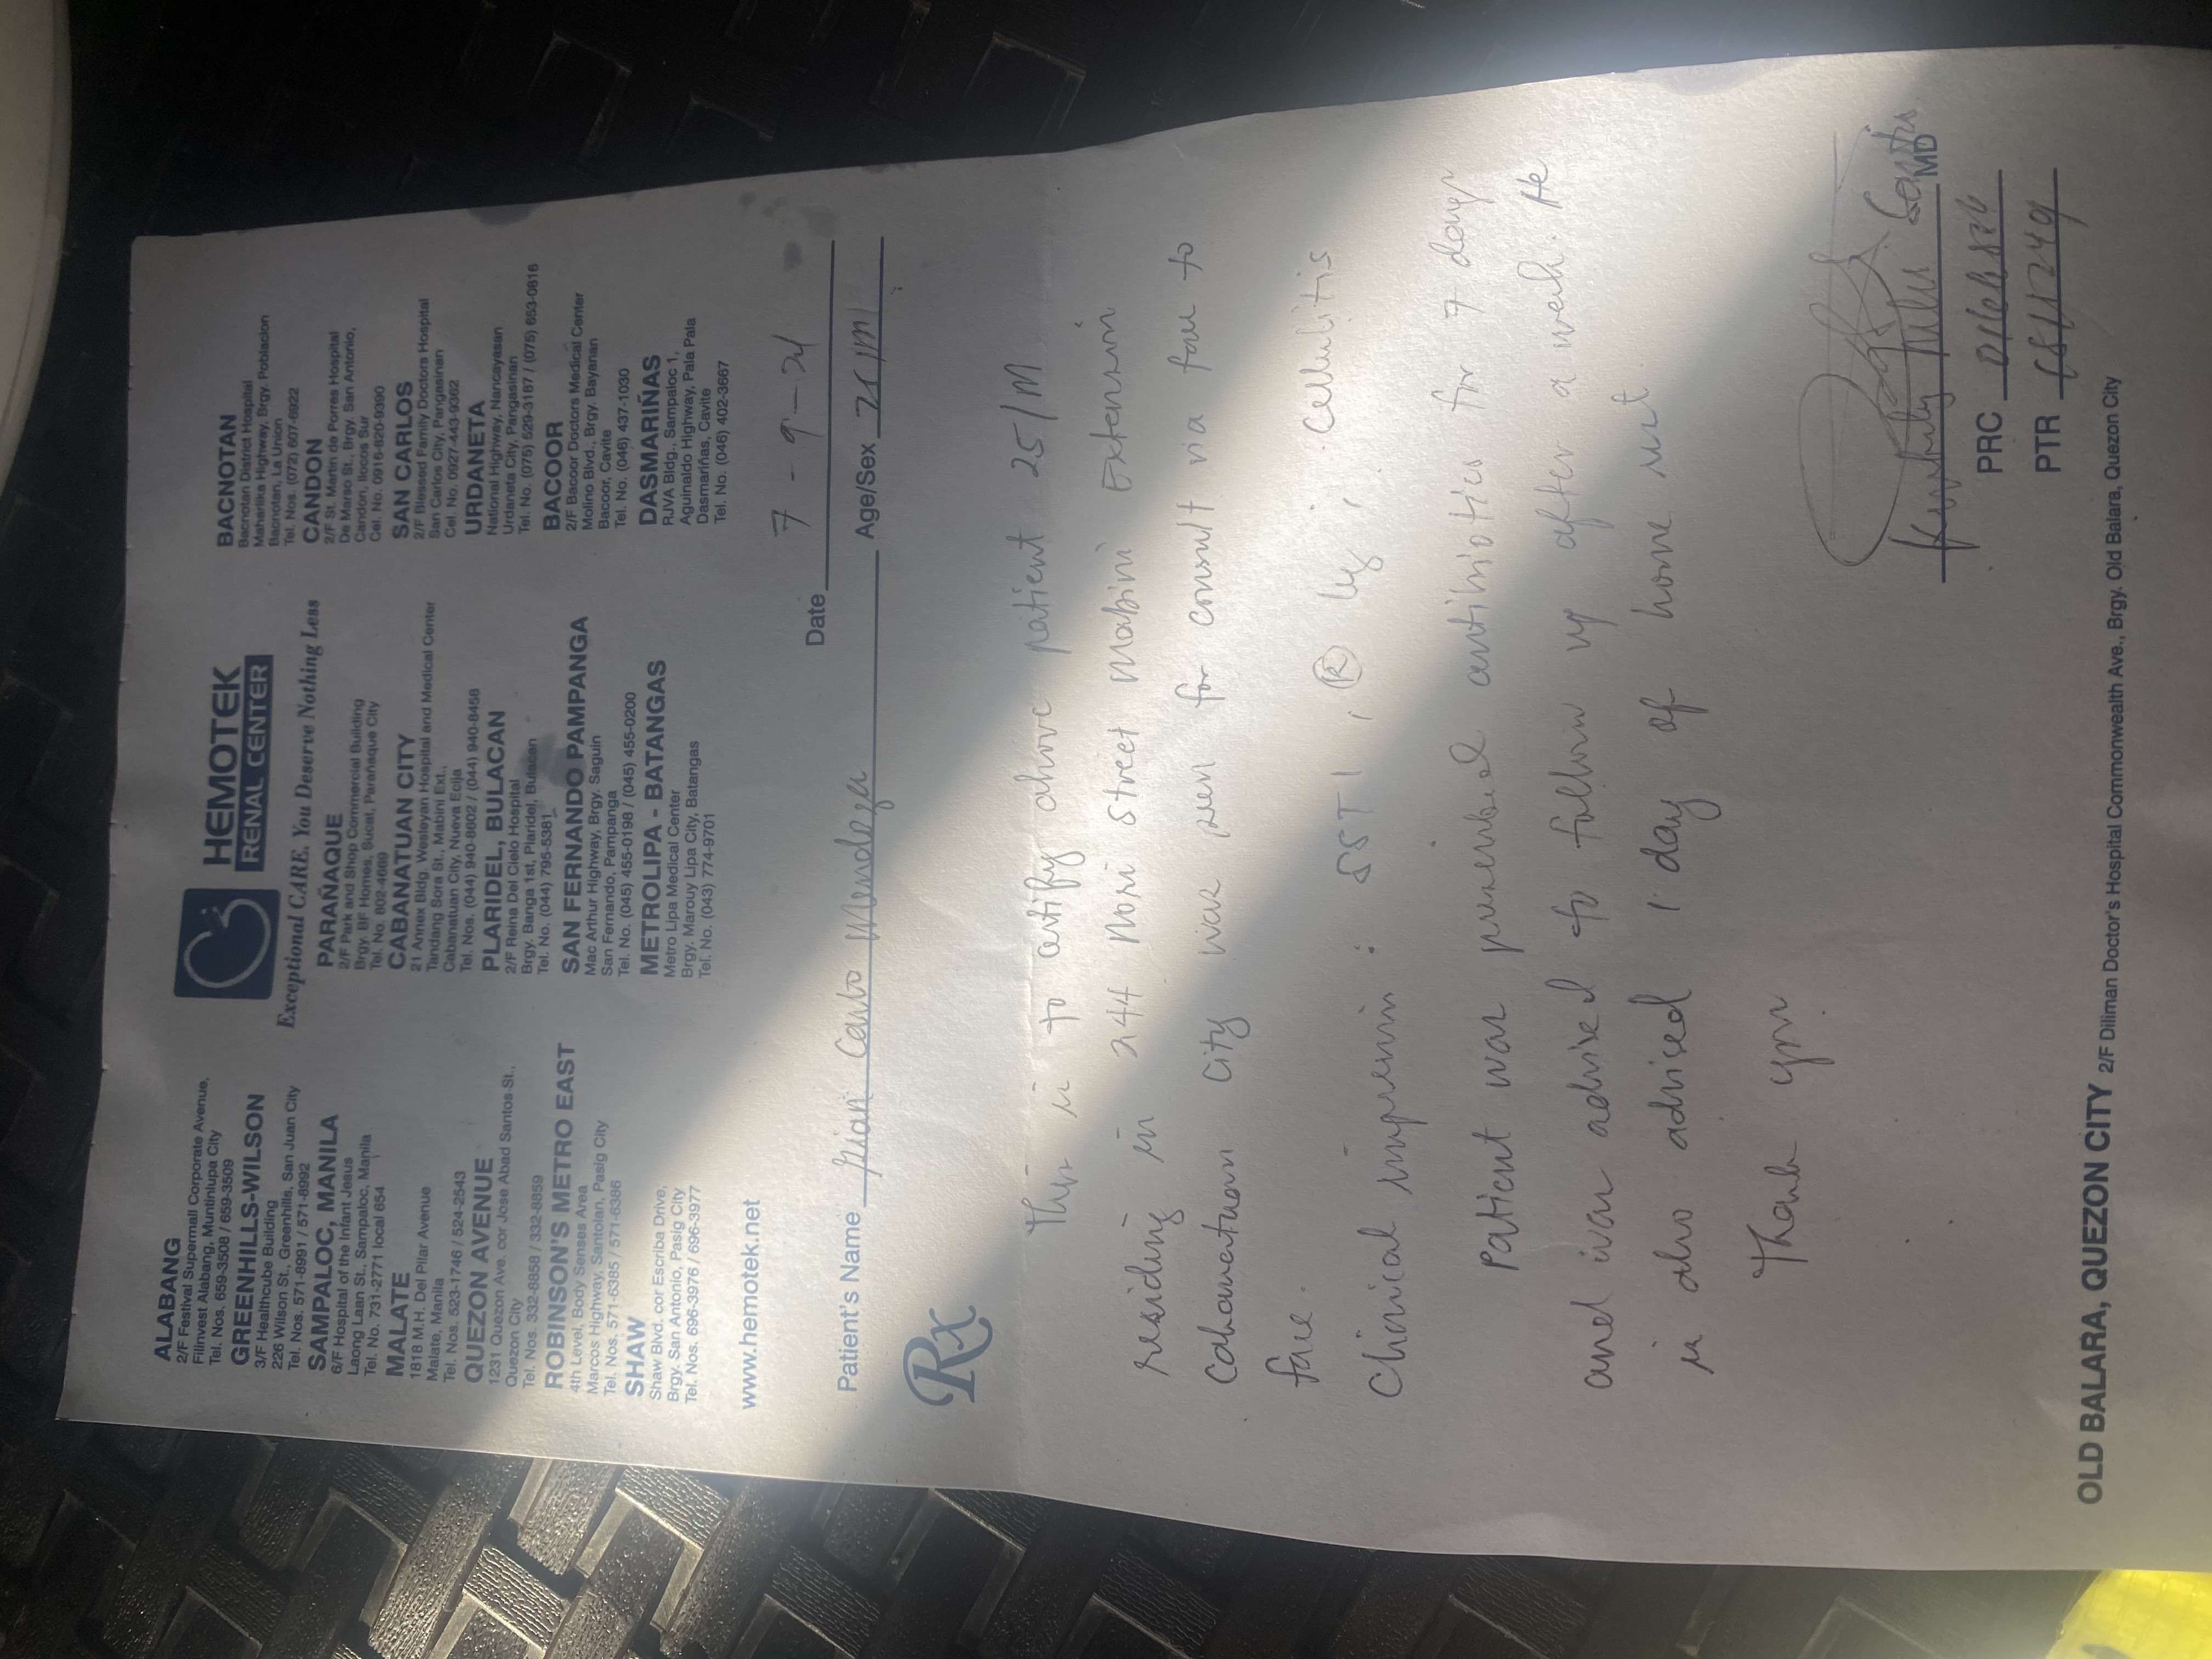 ALABANG
2/F Festival Supermall Corporate Avenue,
Filinvest Alabang, Muntinlupa City
Tel. Nos. 659-3508 / 659-3509
GREENHILLS-WILSON
3/F Healthcube Building
226 Wilson St., Greenhills, San Juan City
Tel. Nos. 571-8991 / 571-8992
SAMPALOC, MANILA
6/F Hospital of the Infant Jesus
Laong Laan St., Sampaloc, Manila
Tel. No. 731-2771 local 654
MALATE
1818 M.H. Del Pilar Avenue
Malate, Manila
Tel. Nos. 523-1746 / 524-2543
QUEZON AVENUE
1231 Quezon Ave. cor Jose Abad Santos St.,
Quezon City
Tel. Nos. 332-8858 / 332-8859
ROBINSON'S METRO EAST
4th Level, Body Senses Area
Marcos Highway, Santolan, Pasig City
Tel. Nos. 571-6385 / 571-6386
SHAW
Shaw Blvd. cor Escriba Drive,
Brgy. San Antonio, Pasig City
Tel. Nos. 696-3976 / 696-3977
www.hemotek.net
HEMOTEK
RENAL CENTER
Exceptional CARE. You Deserve Nothing Less
PARAÑAQUE
2/F Park and Shop Commercial Building
Brgy. BF Homes, Sucat, Parañaque City
Tel. No. 802-4669
CABANATUAN CITY
21 Annex Bldg. Wesleyan Hospital and Medical Center
Tandang Sora St., Mabini Ext.,
Cabanatuan City, Nueva Ecija
Tel. Nos. (044) 940-8602 / (044) 940-8456
PLARIDEL, BULACAN
2/F Reina Del Cielo Hospital
Brgy. Banga 1st, Plaridel, Bulacan
Tel. No. (044) 795-5381
SAN FERNANDO PAMPANGA
Mac Arthur Highway, Brgy. Saguin
San Fernando, Pampanga
Tel. No. (045) 455-0198 / (045) 455-0200
METROLIPA - BATANGAS
Metro Lipa Medical Center
Brgy. Marouy Lipa City, Batangas
Tel. No. (043) 774-9701
BACNOTAN
Bacnotan District Hospital
Maharlika Highway, Brgy. Poblacion
Bacnotan, La Union
Tel. Nos. (072) 607-6922
CANDON
2/F St. Martin de Porres Hospital
De Marso St., Brgy. San Antonio,
Candon, Ilocos Sur
Cel. No. 0916-620-9390
SAN CARLOS
2/F Blessed Family Doctors Hospital
San Carlos City, Pangasinan
Cel. No. 0927-443-9362
URDANETA
National Highway, Nancayasan
Urdaneta City, Pangasinan
Tel. No. (075) 529-3187 / (075) 653-0816
BACOOR
2/F Bacoor Doctors Medical Center
Molino Blvd., Brgy. Bayanan
Bacoor, Cavite
Tel. No. (046) 437-1030
DASMARIÑAS
RJVA Bldg., Sampaloc 1,
Aguinaldo Highway, Pala Pala
Dasmariñas, Cavite
Tel. No. (046) 402-3667
Date 7 - 9 -
Patient's Name Gian Carlo Mendoza Age/Sex
Rx
This is to certify above patient 25/M
residing in 244 Nori Street Mabini Extension
Cabanatuan City was seen for consult via face to
face.
Clinical impression : SSTI , R leg ; Cellulitis
Patient was prescribed antibiotics for 7 days
and was advised to follow up after a week. He
is also advised 1 day of home rest
Thank you
Santos
MD
PRC
PTR
OLD BALARA, QUEZON CITY 2/F Diliman Doctor's Hospital Commonwealth Ave., Brgy. Old Balara, Quezon City